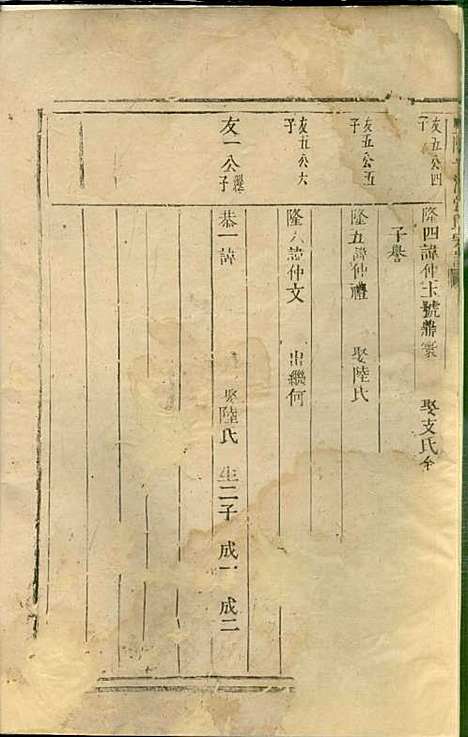 友五公四子 隆四諱仲玉號鼎
娶支氏
子譽
友五公五子 隆五諱仲禮 娶陸氏
友五公六子 隆六諱仲文 出繼何
友一公 子 恭一諱 娶陸氏 生二子 成一 成二